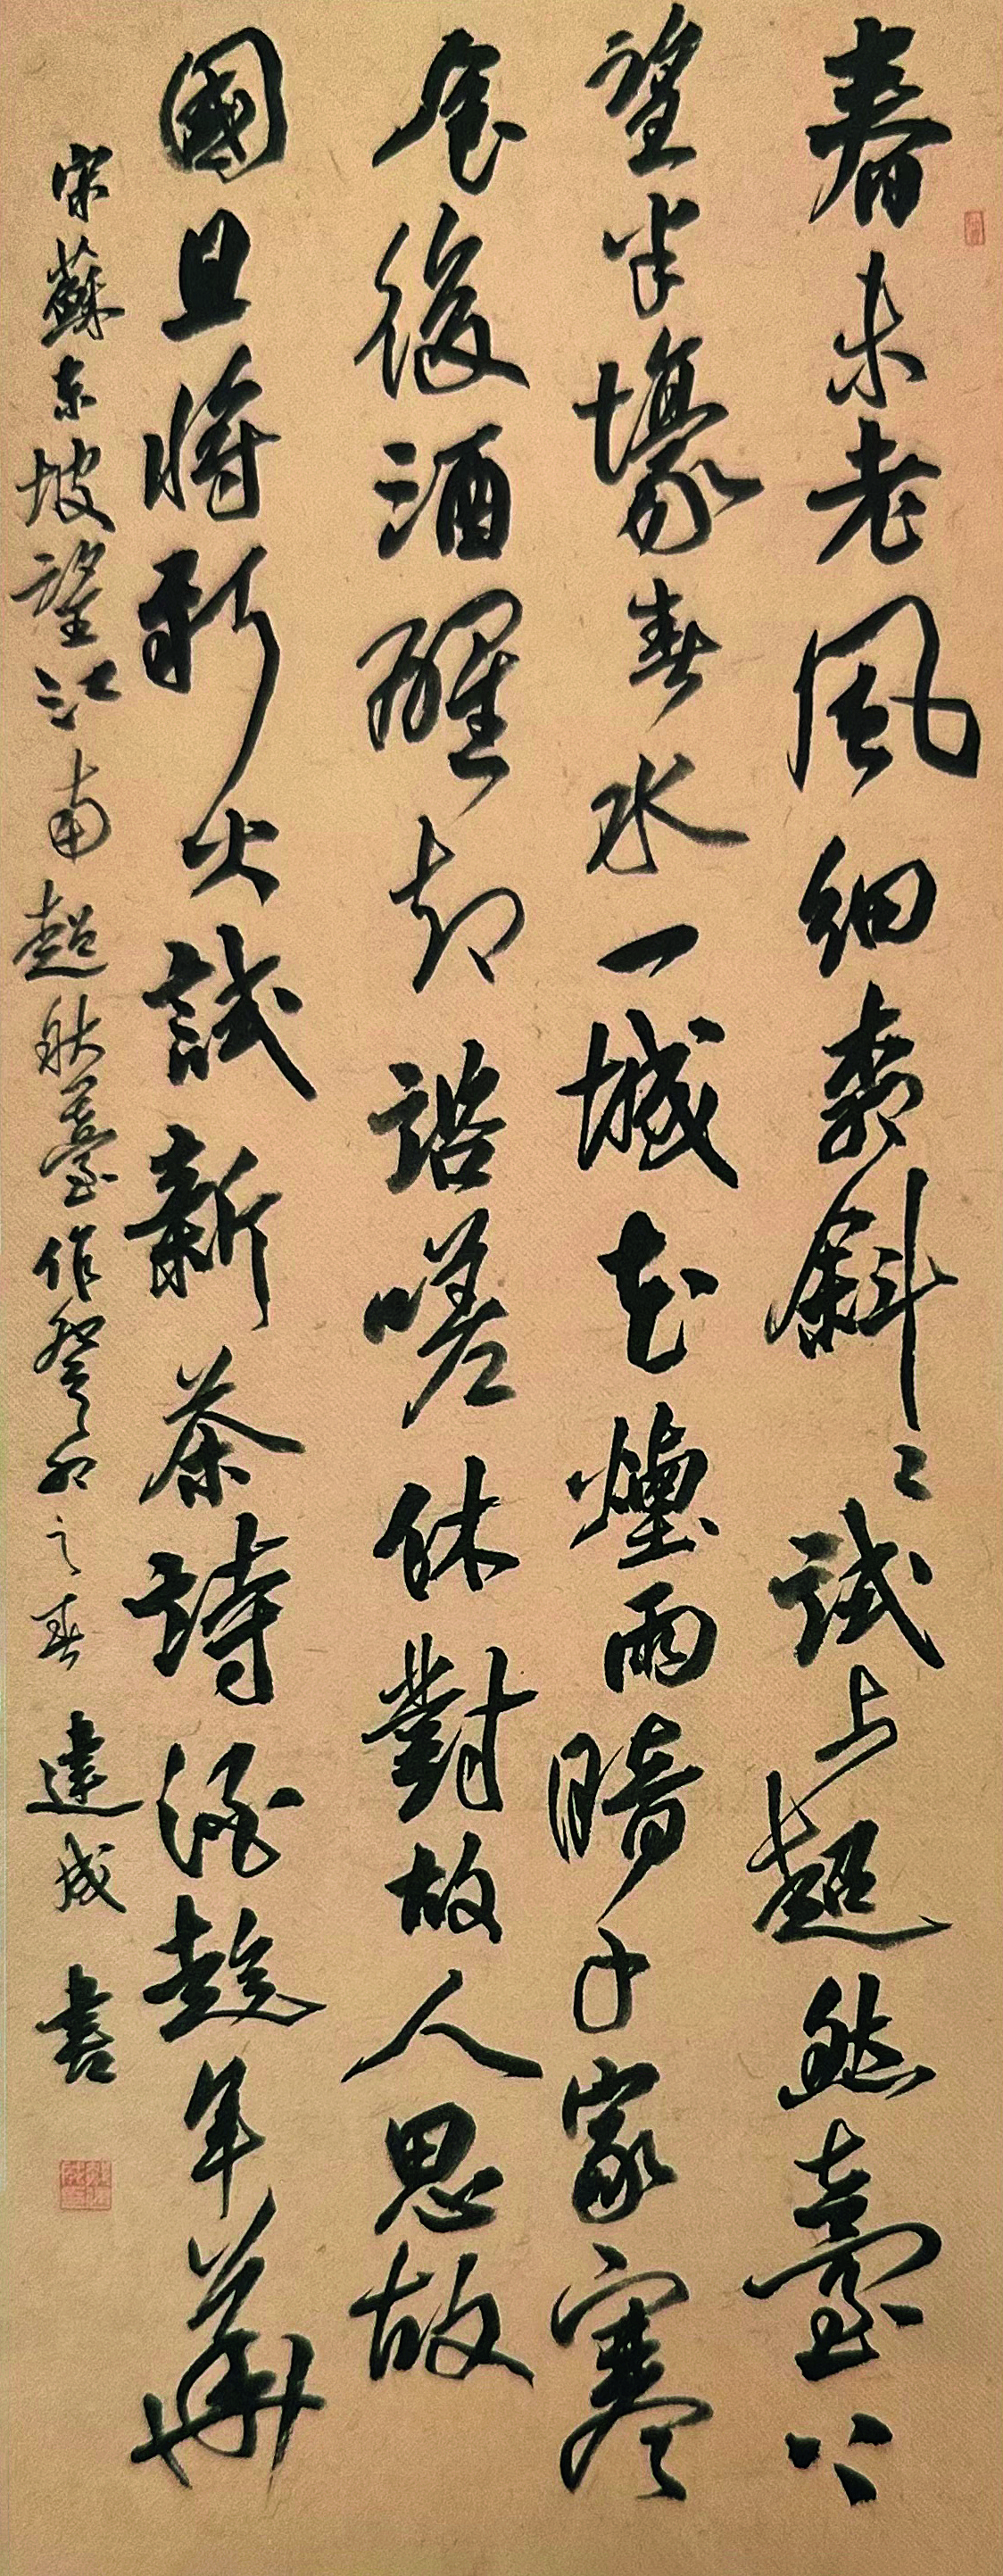 春未老風細柳斜〻試上超然臺上
望半壕春水一城花煙雨暗千家寒
食後酒醒却諮嗟休對故人思故
國且將新火試新茶詩酒趁年華
宋蘇東坡望江南超然臺作癸卯之春 達成書